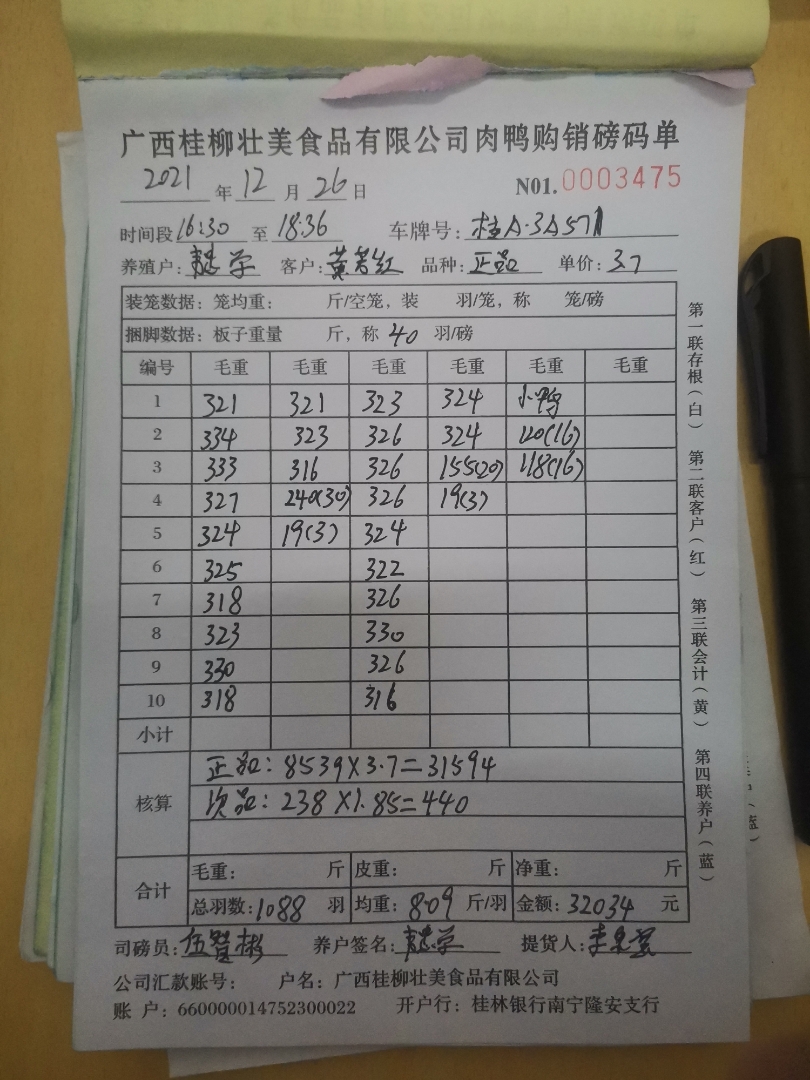 广西桂柳壮美食品有限公司肉鸭购销磅码单
2021 年 12 月 26 日 N01. 0003475
时间段 16:30 至 18:36 车牌号: 桂A·3A571
养殖户: 学 客户: 黄 红 品种: 正品 单价: 3.7
装笼数据: 笼均重: 斤/空笼, 装 羽/笼, 称 笼/磅
捆脚数据: 板子重量 斤, 称 40 羽/磅
编号 毛重 毛重 毛重 毛重 毛重 毛重
1 321 321 323 324 小鸭
2 334 323 326 324 120(16)
3 333 316 326 155(20) 118(16)
4 327 240(30) 326 19(3)
5 324 19(3) 324
6 325 322
7 318 326
8 323 330
9 330 326
10 318 316
小计
核算
正品: 8539×3.7=31594
次品: 238×1.85=440
合计
毛重: 斤 皮重: 斤 净重: 斤
总羽数: 1088 羽 均重: 8.09 斤/羽 金额: 32034 元
司磅员: 伍 彬 养户签名: 学 提货人: 李
公司汇款账号: 户名: 广西桂柳壮美食品有限公司
账 户: 660000014752300022 开户行: 桂林银行南宁隆安支行
第一联存根(白) 第二联客户(红) 第三联会计(黄) 第四联养户(蓝)